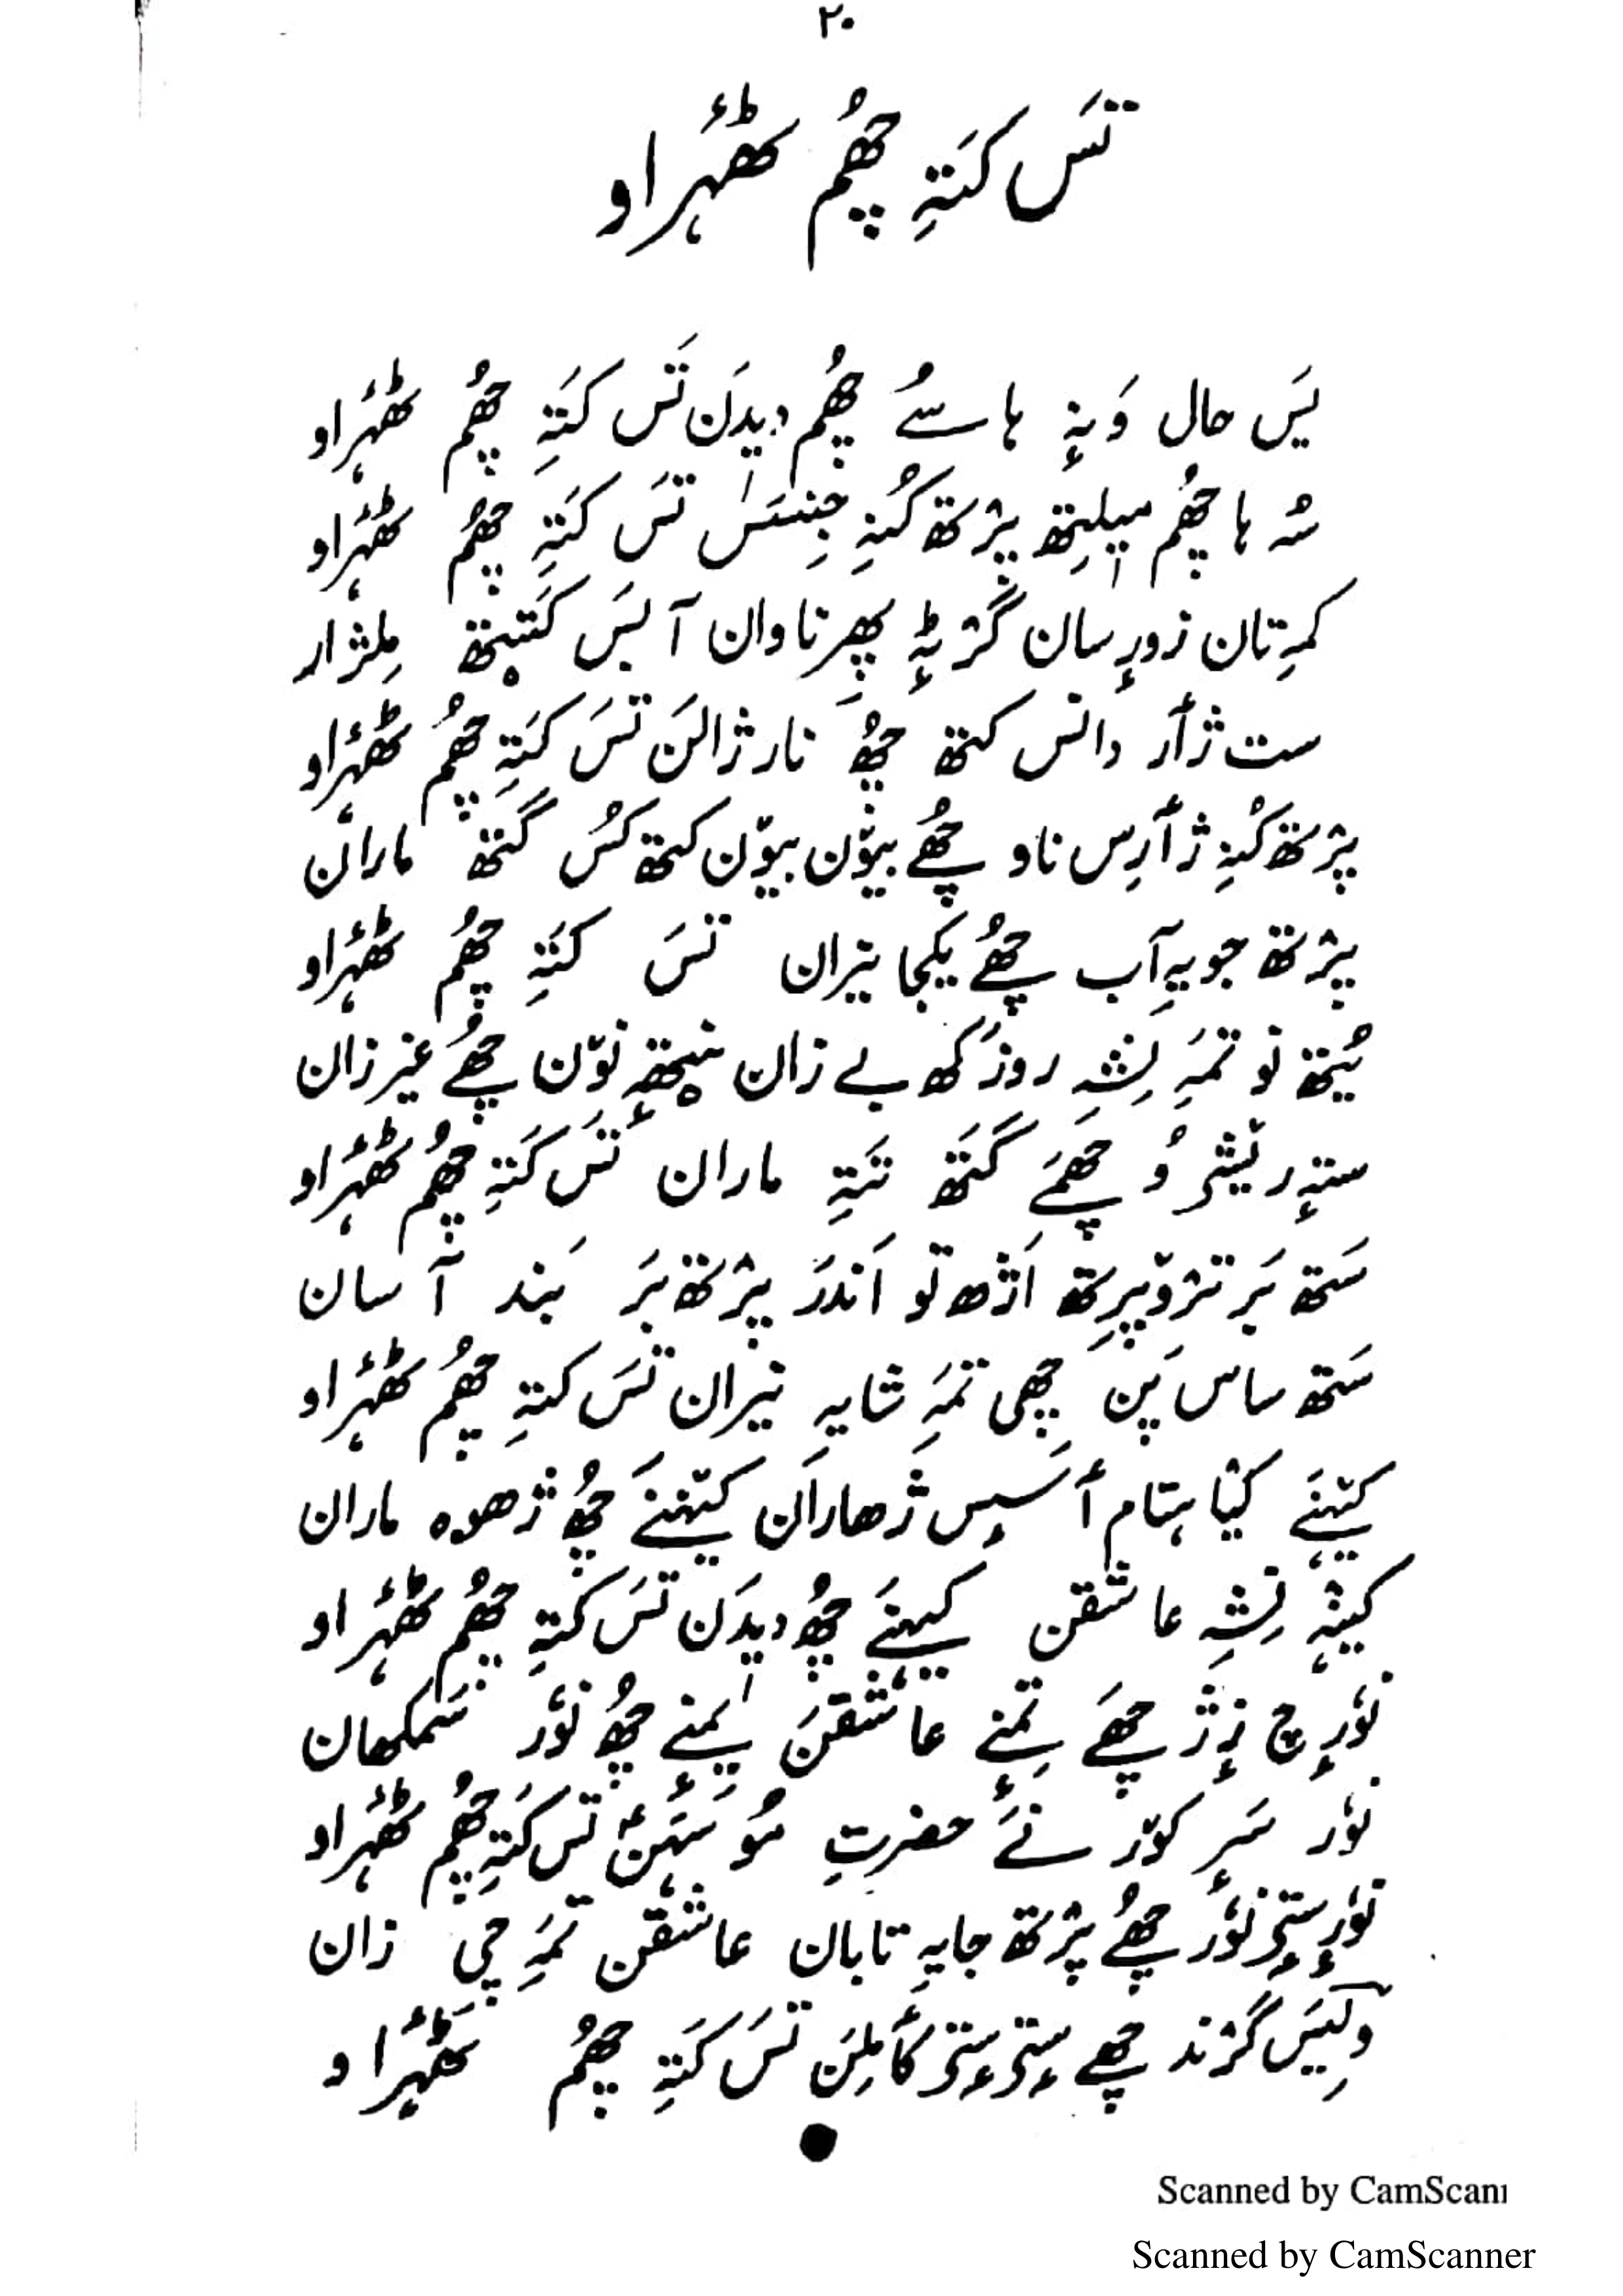 ۲۰
تَس کَتہِ چھُم ٹھٔہراو
یَس حال وَنہٕ ہا سُے چھُم دیدَن تَس کَتہِ چھُم ٹھٔہراو
سُہ ہا چھُم میٖلِتھ پرٛتھ کُنہِ جِنسَس تَس کَتہِ چھُم ٹھٔہراو
کمِ تان زورٕ سان گرٛٹہٕ پھِرناوان آبَس کَتیٖتھ مِلژار
ست ژأر دانس کتھ چھُ نار ژالَن تَس کَتہِ چھُم ٹھٔہراو
پرٛتھ کُنہِ ژأرِس ناو چھُے بیوٚن بیوٚن کتھ کُس گَتھ ماران
پرٛتھ جویہِ آب چھُے یکجا نیران تَس کَتہِ چھُم ٹھٔہراو
یُتھ نو تمہِ نِشہِ روزَکھ بے زان نیٖتھہٕ نوٚن چھُے غیر زان
ستہٕ ریٚشی وُچھمَے گَتھ تَتہِ ماران تَس کَتہِ چھُم ٹھٔہراو
سَتھ بَر تروٚپرِتھ اَژھ تو اَندَر پرٛتھ بَر بَند آسان
سَتھ ساس پَن چھی تمہِ شایہِ نیران تَس کتہِ چھُم ٹھٔہراو
کیٚنہنَے کیٚاہتام أسٕس ژھاران کیٚنہنَے چھُ ژھوہ ماران
کینہہ نِشہِ عاشقن کیہنَے چھُ دیدَن تَس کَتہِ چھُم ٹھٔہراو
نوٗرٕچ نٕژ چھَے تِمنٕے عاشقنَ یِمنٕے چھُ نوٗر سَمکھان
نوٗر سَر کوٚر نَے حضرتِ موسَہَن تَس کَتہِ چھُم ٹھٔہراو
نوٗرٕ ستۍ نوٗر چھُے پرٛتھ جایہِ تابان عاشقن تمہِ چی زان
وِکیَس گرٛند چھے سٕتۍ سٕتۍ کأمِلن تَس کَتہِ چھُم ٹھٔہراو
Scanned by CamScan
Scanned by CamScanner